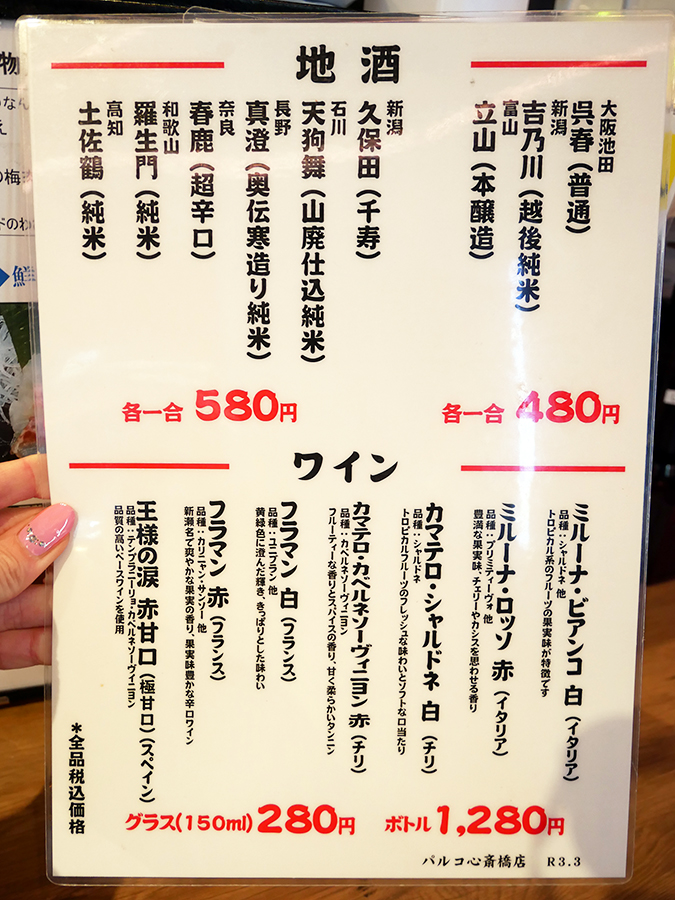 地酒
大阪池田
呉春（普通）
新潟
吉乃川（越後純米）
富山
立山（本醸造）
各一合 480円
新潟
久保田（千寿）
石川
天狗舞（山廃仕込純米）
長野
真澄（奥伝寒造り純米）
奈良
春鹿（超辛口）
和歌山
羅生門（純米）
高知
土佐鶴（純米）
各一合 580円
ワイン
ミルーナ・ビアンコ 白（イタリア）
品種：シャルドネ 他
トロピカル系のフルーツの果実味が特徴です
ミルーナ・ロッソ 赤（イタリア）
品種：プリミティーヴォ 他
豊満な果実味、チェリーやカシスを思わせる香り
カマテロ・シャルドネ 白（チリ）
品種：シャルドネ
トロピカルフルーツのフレッシュな味わいとソフトな口当たり
カマテロ・カベルネソーヴィニヨン 赤（チリ）
品種：カベルネソーヴィニヨン
フルーティーな香りとスパイスの香り、甘く柔らかいタンニン
フラマン 白（フランス）
品種：ユニブラン 他
黄緑色に澄んだ輝き、きっぱりとした味わい
フラマン 赤（フランス）
品種：カリニャン・サンソー 他
新瀬名で爽やかな果実の香り、果実味豊かな辛口ワイン
王様の涙 赤甘口（極甘口）（スペイン）
品種：テンプラニーリョ・カベルネソーヴィニヨン
品質の高いベースワインを使用
グラス(150ml) 280円 ボトル 1,280円
＊全品税込価格
パルコ心斎橋店 R3.3